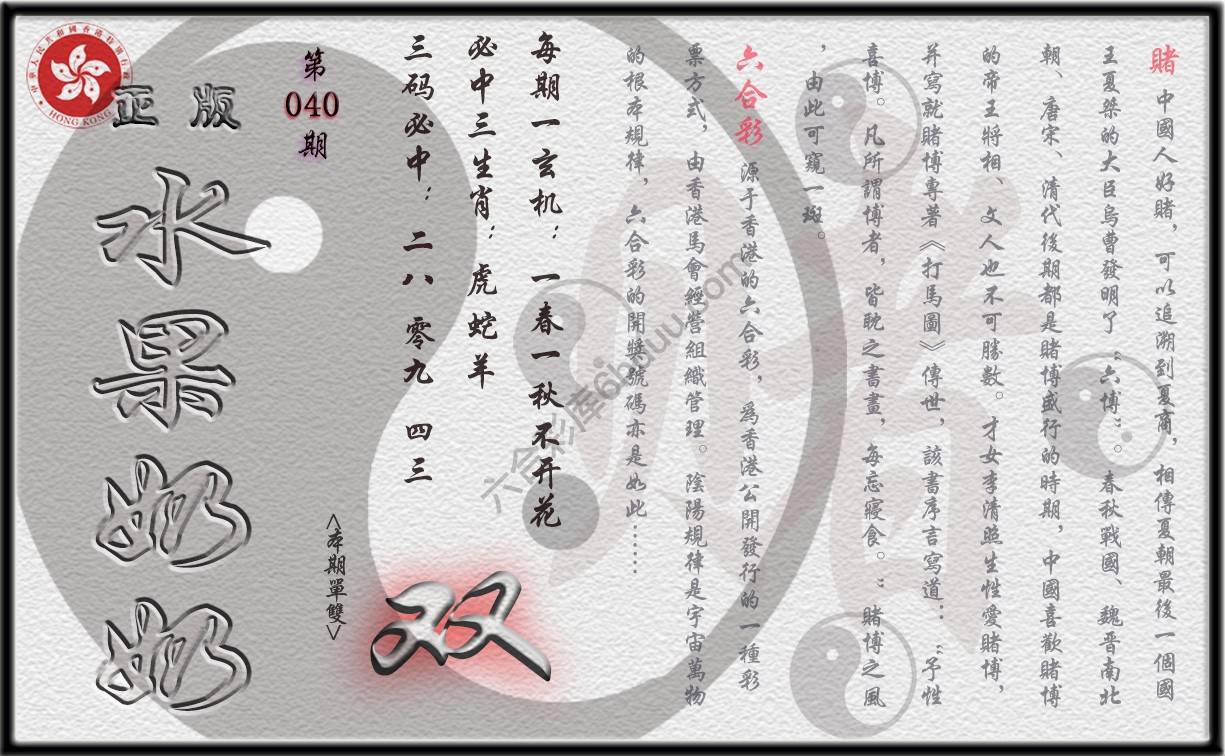 賭 中國人好賭，可以追溯到夏商，相傳夏朝最後一個國
王夏桀的大臣烏曹發明了“六博”。春秋戰國、魏晉南北
朝、唐宋、清代後期都是賭博盛行的時期，中國喜歡賭博
的帝王將相、文人也不可勝數。才女李清照生性愛賭博，
并寫就賭博專著《打馬圖》傳世，該書序言寫道：“予性
喜博。凡所謂博者，皆耽之書畫，每忘寢食。”賭博之風
，由此可窺一斑。
六合彩 源于香港的六合彩，爲香港公開發行的一種彩
票方式，由香港馬會經營組織管理。陰陽規律是宇宙萬物
的根本規律，六合彩的開獎號碼亦是如此……
每期一玄机：一春一秋不开花
必中三生肖：虎蛇羊
三码必中：二八 零九 四三
<本期單雙>
双
第
040
期
正版
水果奶奶
中華人民共和國香港特別行政區
HONG KONG
六合彩库6hduu.com